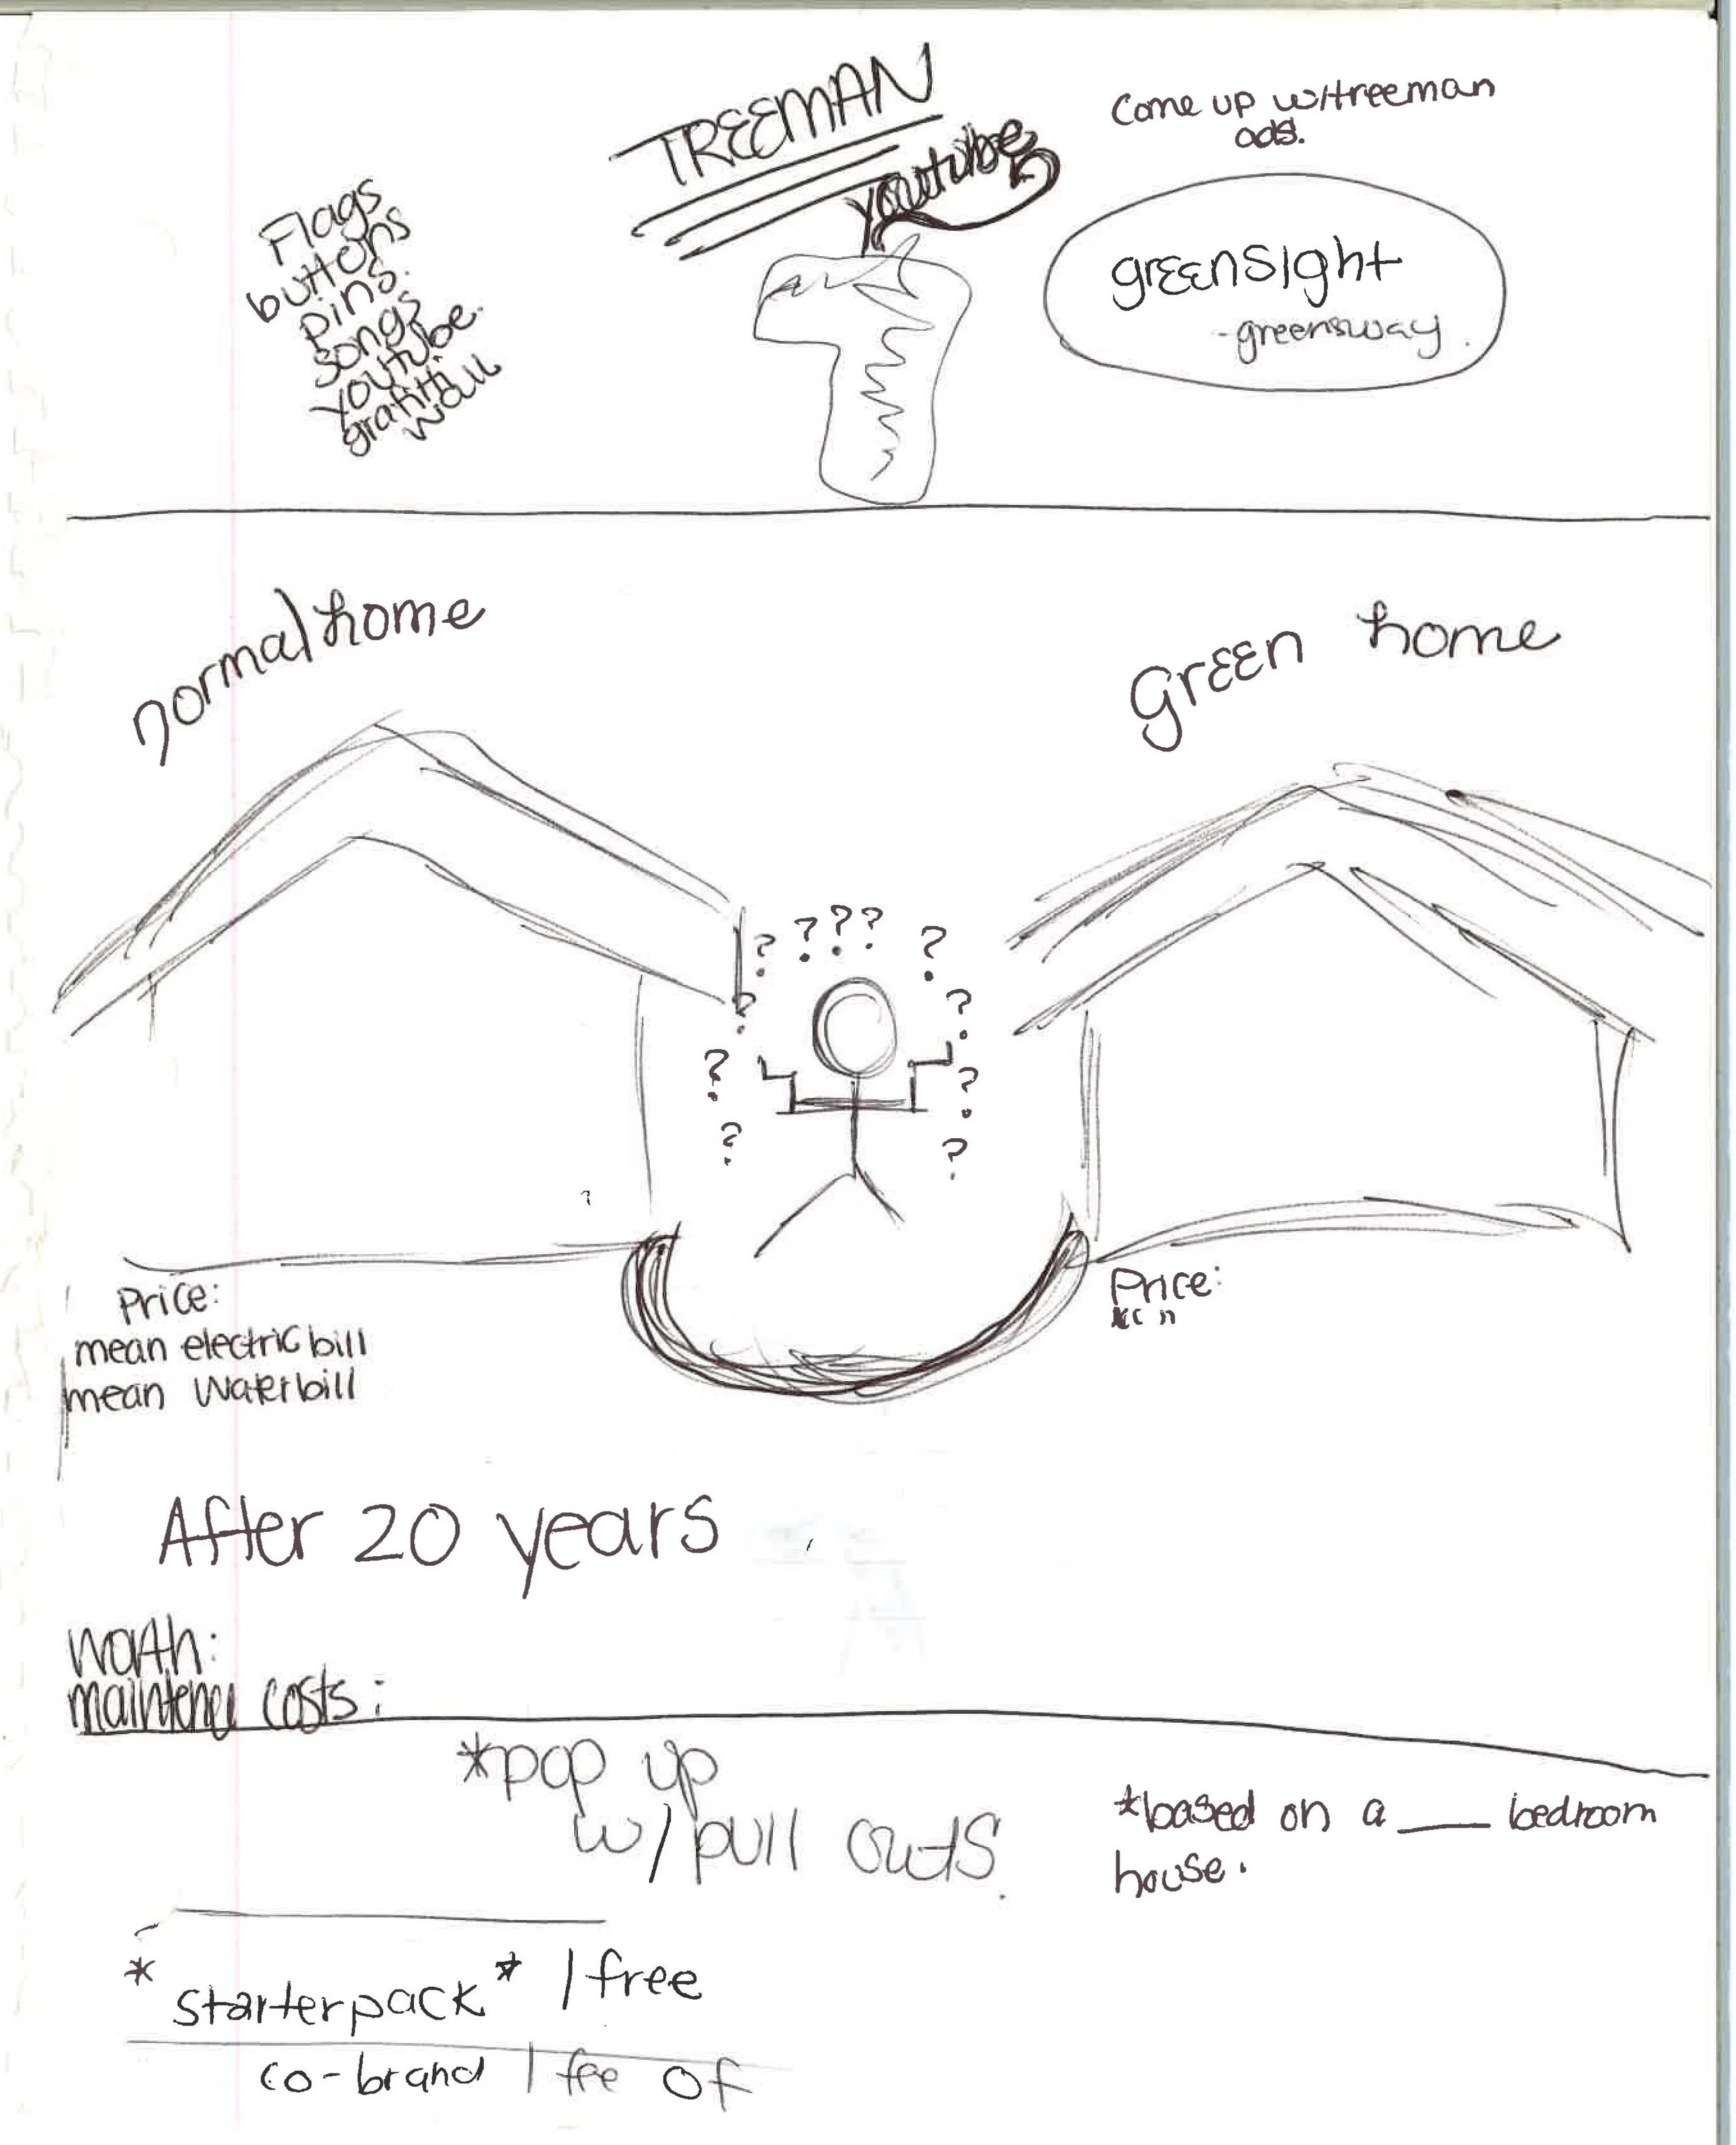 TREEMAN
youtube
Come up w/treeman
ads.
Flags
buttons
pins.
songs
youtube.
grafitti
wall
greensight
-greensway.
normal home
Green home
? ? ? ? ?
? ?
? ?
? ?
?
Price:
mean electric bill
mean Waterbill
Price:
" "
After 20 years
worth:
costs:
*pop up
w/pull outs.
*based on a ___ bedroom
house.
* starterpack * / free
co-brand / fee of